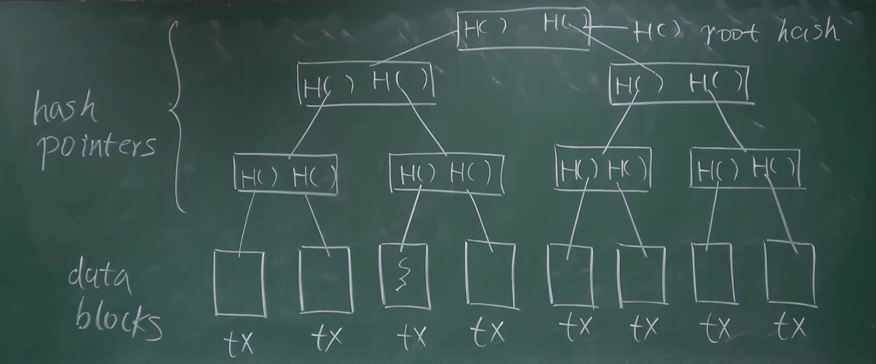 H( ) H( )
H( ) root hash
H( ) H( )
H( ) H( )
hash
pointers
H( ) H( )
H( ) H( )
H( ) H( )
H( ) H( )
data
blocks
tx tx tx tx tx tx tx tx